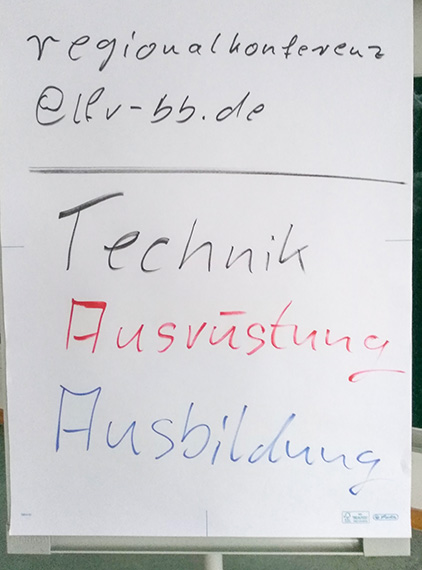 regionalkonferenz
@lfv-bb.de
Technik
Ausrüstung
Ausbildung